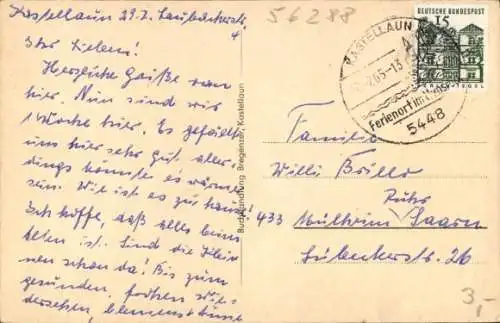 56288
Kastellaun 29.7. Laubacherstr. 4
Ihr Lieben!
Herzliche Grüße von
hier. Nun sind wir
1 Woche hier. Es gefällt
uns hier sehr gut. Aller-
dings könnte es wärmer
sein. Wie ist es zu hause?
Ich hoffe, daß alles beim
Alten ist. Sind die Klei-
nen schon da? Bis zum
gesunden, frohen Wie-
dersehen,
Buchhandlung Bregenzer, Kastellaun
DEUTSCHE BUNDESPOST
15
KASTELLAUN
65-13
Ferienort im
5448
Familie
Willi Brillo
433 Mülheim Ruhr Saarn
Lübeckerstr. 26
3,-